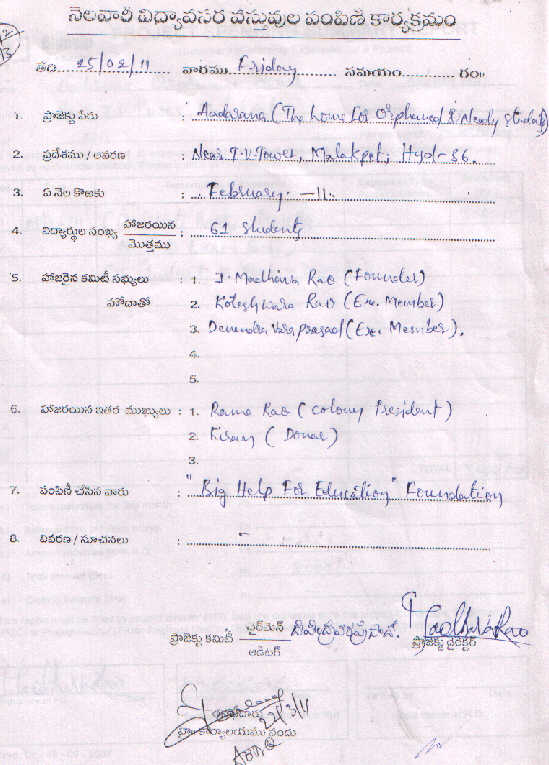 నెలవారీ విద్యావసర వస్తువుల పంపిణి కార్యక్రమం
తేది 25/02/11 వారము Friday సమయం గం॥
1. ప్రాజెక్టు పేరు : Aadarana (The home for orphaned & Needy students)
2. ప్రదేశము / ఆవరణ : Near T.V. Tower, Malakpet, Hyd-36.
3. ఏ నెల కొఱకు : February -11.
4. విద్యార్థుల సంఖ్య హాజరయిన / మొత్తము : 61 students
5. హాజరైన కమిటీ సభ్యులు : 1. J. Madhava Rao (Founder)
హోదాతో 2. Koteshwara Rao (Exe. Member)
3. Devendra Vara prasad (Exe. Member).
4.
5.
6. హాజరయిన ఇతర ముఖ్యులు : 1. Rama Rao (colony President)
2. Kiran (Donar)
3.
7. పంపిణీ చేసిన వారు : "Big Help For Education" Foundation
8. వివరణ / సూచనలు :
ప్రాజెక్టు కమిటీ చైర్‌మెన్ / ఆడిటర్ దేవేంద్రవరప్రసాద్. Madhava Rao
ప్రాజెక్టు డైరెక్టర్
22/3/11
కార్యాలయము నందు